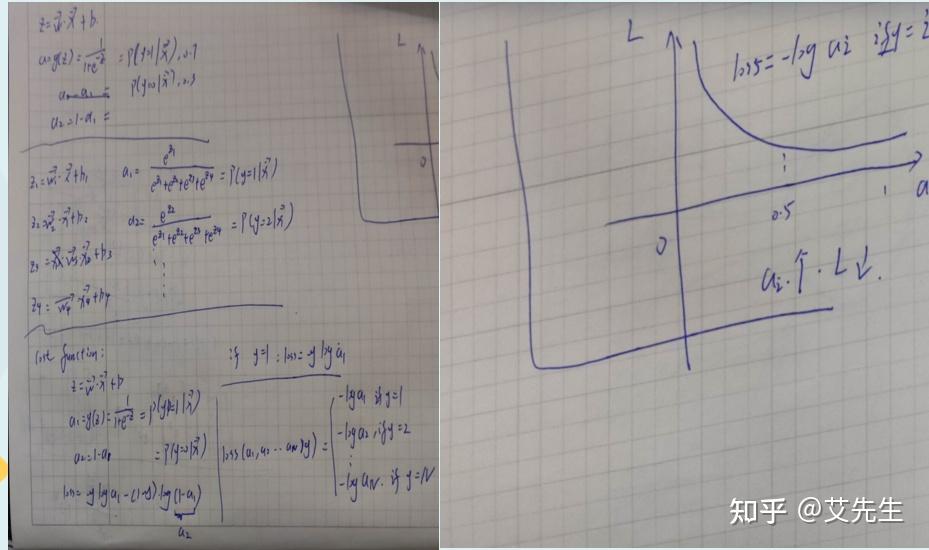 z=w⃗·x⃗+b.
a=g(z)=1/(1+e^-z) =P(y=1|x⃗), 0.7
P(y=0|x⃗), 0.3
a2=1-a1=
z1=w⃗1·x⃗+b1
a1= e^z1/(e^z1+e^z2+e^z3+e^z4) =P(y=1|x⃗)
z2=w⃗2·x⃗+b2
a2= e^z2/(e^z1+e^z2+e^z3+e^z4) =P(y=2|x⃗)
z4=w⃗4·x⃗4+b4
Cost function:
z=w⃗·x⃗+b
a1=g(z)=1/(1+e^-z)=P(y=1|x⃗)
a2=1-a1 =P(y=0|x⃗)
loss=-y log a1-(1-y) log(1-a1)
a2
if y=1: loss=-y log a1
loss(a1,a2...aN,y)=
-log a1 if y=1
-log a2, if y=2
⋮
-log aN. if y=N
L
0
L
loss=-log ai if y=i
0
0.5
1
a
ai.↑. L↓.
知乎 @艾先生